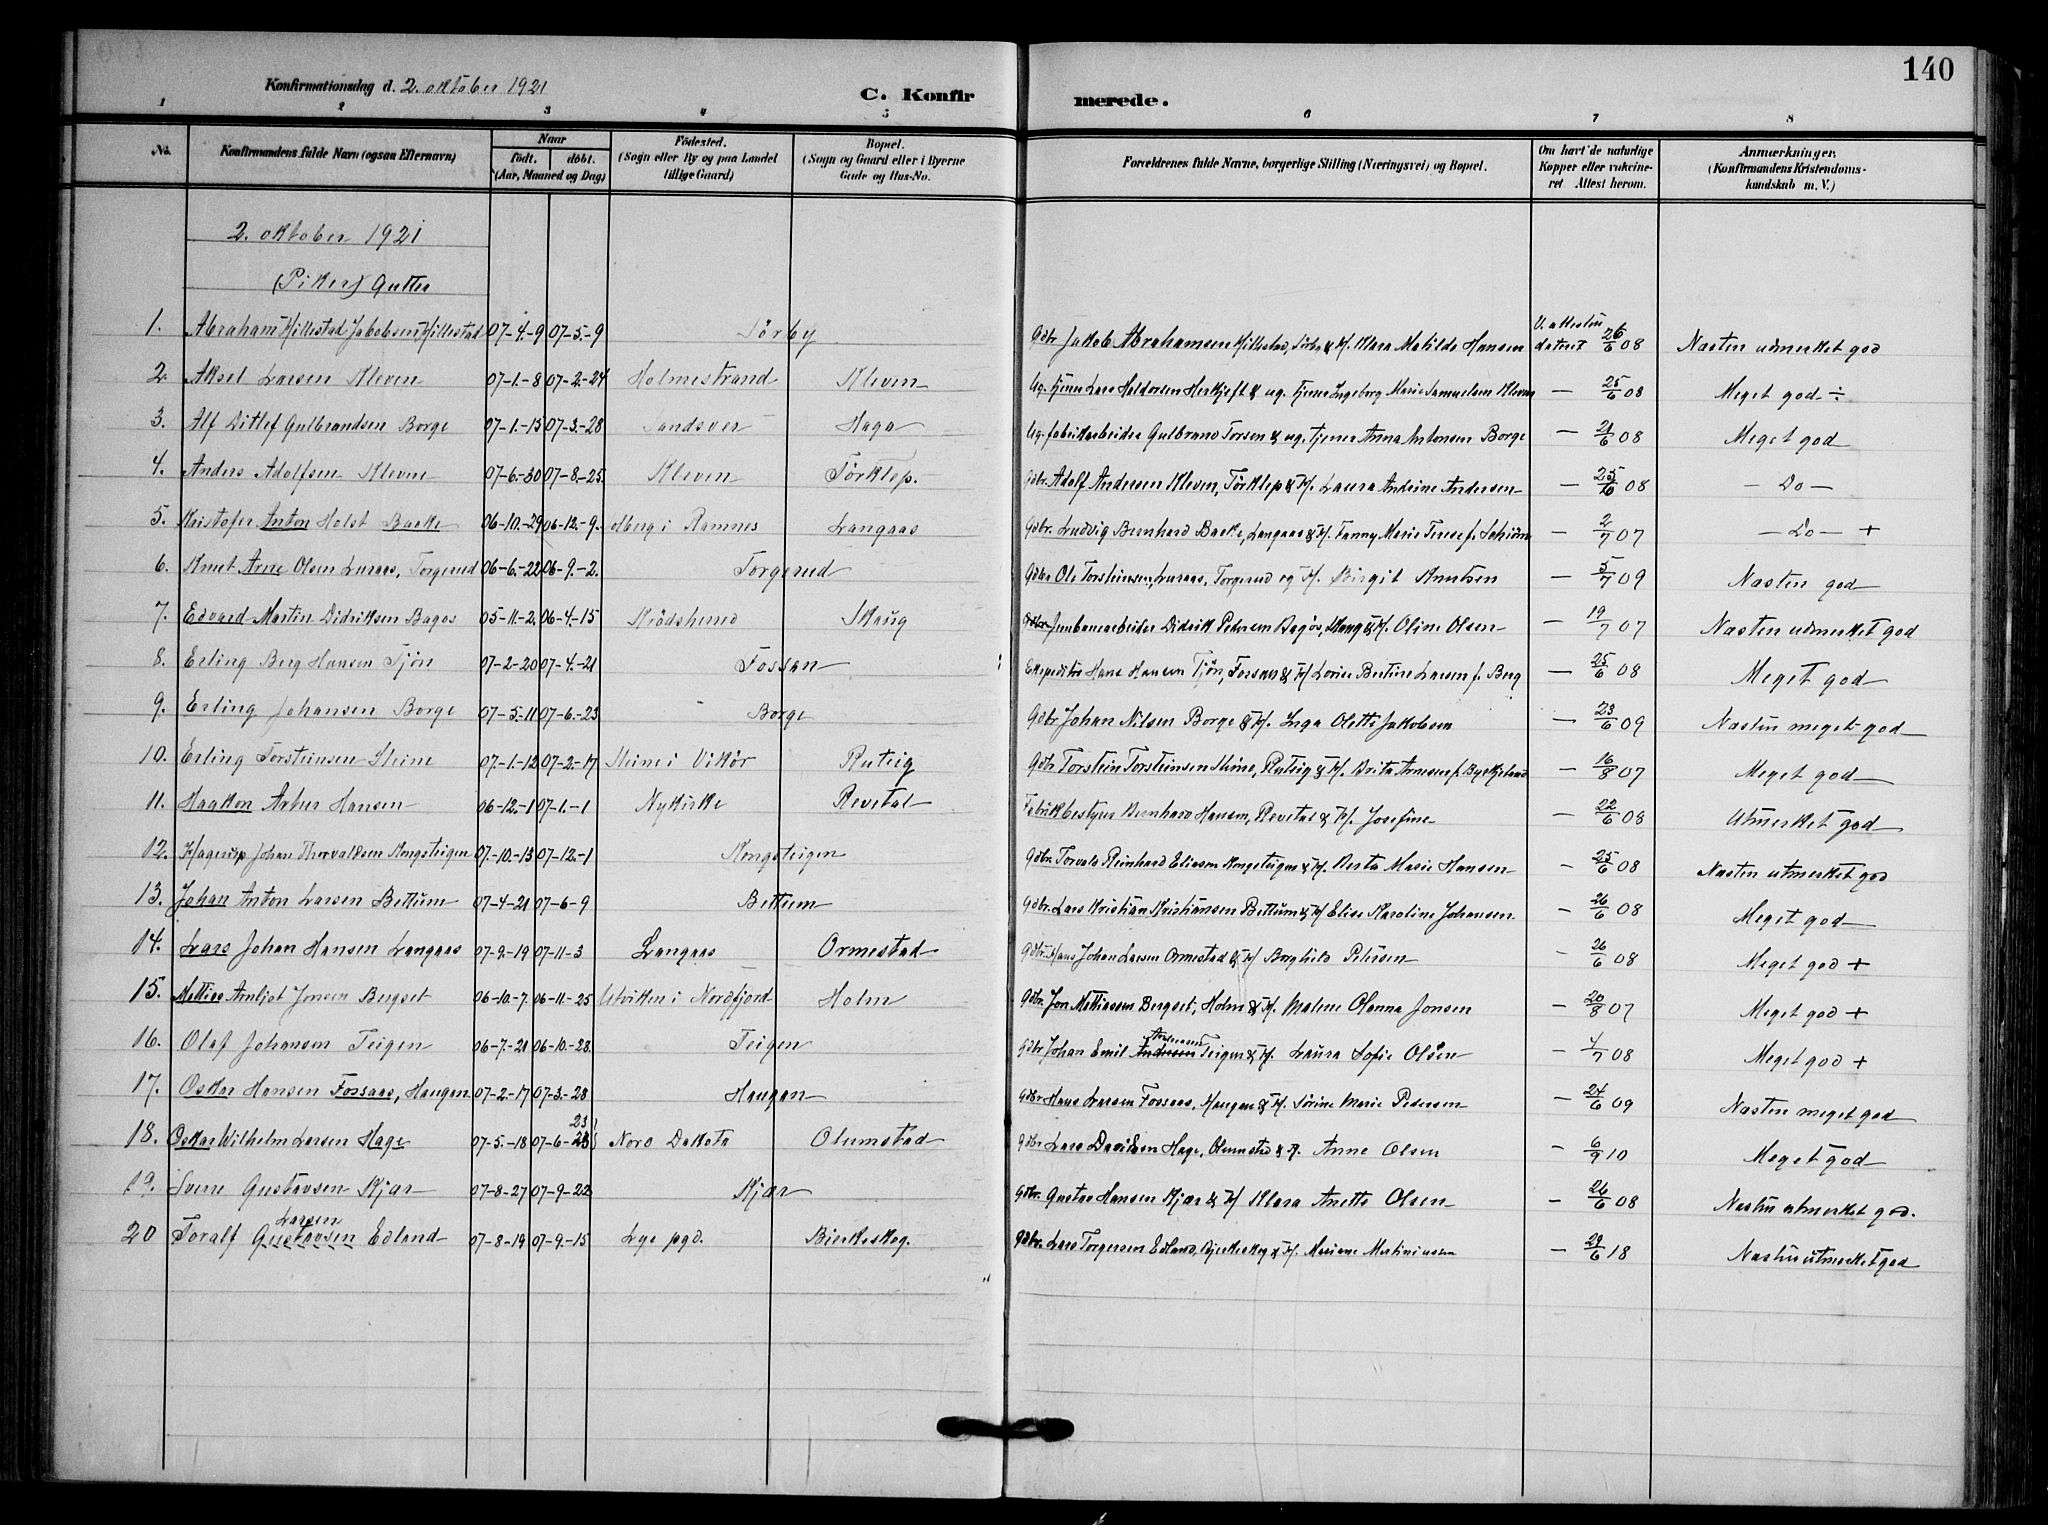 140
Konfirmationsdag d. 2. oktober 1921
C. Konfirmerede.
1 2 3 4 5 6 7 8
No. Konfirmandens fulde Navn (ogsaa Efternavn) Naar født. døbt. (Aar, Maaned og Dag) Fødested. (Sogn eller By og paa Landet tillige Gaard) Bopæl. (Sogn og Gaard eller i Byerne Gade og Hus-No. Forældrenes fulde Navne, borgerlige Stilling (Næringsvei) og Bopæl. Om havt de naturlige Kopper eller vakcineret. Attest herom. Anmærkninger. (Konfirmandens Kristendomskundskab m. V.)
2. oktober 1921
(Piker) Gutter
1. Abraham Hillestad Jakobsen, Hillestad 07-4-9 07-5-9 Sørby Gdbr Jakob Abrahamsen Hillestad, Sørby & H. Klara Matilde Hansen V. attest datert 26/6 08 Nasten utmerket god
2. Aksel Larsen Kleven 07-1-8 07-2-24 Holmestrand Kleven Ug. tjener Lars Haldorsen & ug. tjener Ingeborg Marie Samuelsen Kleven — 25/6 08 Meget god ÷
3. Alf Ditlef Gulbrandsen Borge 07-1-15 07-3-28 Sandsver Haga Ug. fabrikarbeider Gulbrand Torsen & ug. tjener Anna Antonsen Borge — 21/6 08 Meget god
4. Anders Adolfsen Kleven 07-6-30 07-8-25. Kleven Tørklep. Gdbr. Adolf Andersen Kleven, Tørklep & H. Laura Andrine Andersen — 25/6 08 — Do —
5. Kristofer Anton Holst Bakke 06-10-29 06-12-9. i Ramnes Langaas Gdbr. Ludvig Bernhard Bakke, Langaas & H. Fanny Marie Terese f. — 2/7 07 — Do — +
6. Knut Arne Olsen Luraas, Torgerud 06-6-22 06-9-2. Torgerud Gdbr Ole Torsteinsen Luraas, Torgerud og H. Birgit Knutsen — 5/7 09 Nasten god
7. Edvard Martin Didriksen Bagos 05-11-2. 06-4-15 Krødsherred Skaug Jernbanearbeider Didrik Pedersen Bagøs, Skaug & H. Oline Olsen — 19/7 07 Nasten utmerket god
8. Erling Berg Hansen Tjøn 07-2-20 07-4-21 Fossan Ekspeditør Hans Hansen Tjøn, Fossan & H Lovise Bertine Larsen f. Berg — 25/6 08 Meget god
9. Erling Johansen Borge 07-5-11 07-6-23 Borge Gdbr Johan Nilsen Borge & H. Inga Olette Jakobsen — 23/6 09 Nasten meget god
10. Erling Torsteinsen Steine 07-1-12 07-2-17 Steine i Vikør Ruteig Gdbr Torstein Torsteinsen Steine, Ruteig & H. Brita Arnesen f. Byrkjeland — 16/8 07 Meget god
11. Haakon Artur Hansen 06-12-1 07-1-1 Nykirke Revetal Fabrikbestyrer Bernhard Hansen, Revetal & H. Josefine — 22/6 08 Utmerket god
12. Hagerup Johan Thorvaldsen Kongsteigen 07-10-13 07-12-1 Kongsteigen Gdbr. Torvald Reinhard Eliasen Kongsteigen & H. Berta Marie Hansen — 25/6 08 Nasten utmerket god
13. Johan Anton Larsen Bettum 07-4-21 07-6-9 Bettum Gdbr. Lars Kristian Kristiansen Bettum & H Elise Karoline Johansen — 26/6 08 Meget god
14. Lars Johan Hansen Langaas 07-9-19 07-11-3 Langaas Ormestad Gdbr. Hans Johan Larsen Ormestad & H Borghild Petersen — 26/6 08 Meget god +
15. Mattias Arnljot Jonsen Bergset 06-10-7. 06-11-25 Utviken i Nordfjord Holm Gdbr. Jon Mattiassen Bergset, Holm & H. Malene Olanna Jonsen — 20/8 07 Meget god +
16. Olaf Johansen Teigen 06-7-21 06-10-28. Teigen Gdbr Johan Emil Teigen & H. Laura Sofie Olsen — 4/7 08 Meget god +
17. Oskar Hansen Fossaas, Haugan 07-2-17 07-3-28 Haugan Gdbr Hans Larsen Fossaas, Haugan & H. Sørine Marie Pedersen — 24/6 09 Nasten meget god
18. Oskar Wilhelm Larsen Hage 07-5-18 07-6-23 Nord Dakota Olumstad Gdbr Lars Davidsen Hage, Olumstad & H. Anne Olsen — 6/9 10 Meget god
19. Sverre Gustavsen Kjær 07-8-27 07-9-22 Kjær Gdbr. Gustav Hansen Kjær & H Klara Anette Olsen — 26/6 08 Nasten utmerket god.
20 Toralf Gustavsen Larsen Edland 07-8-19 07-9-15 Lye pgd. Bjerkeskog. Gdbr. Lars Torgersen Edland, Bjerkeskog & H. Mariane Martiniussen — 29/6 18 Nasten utmerket god